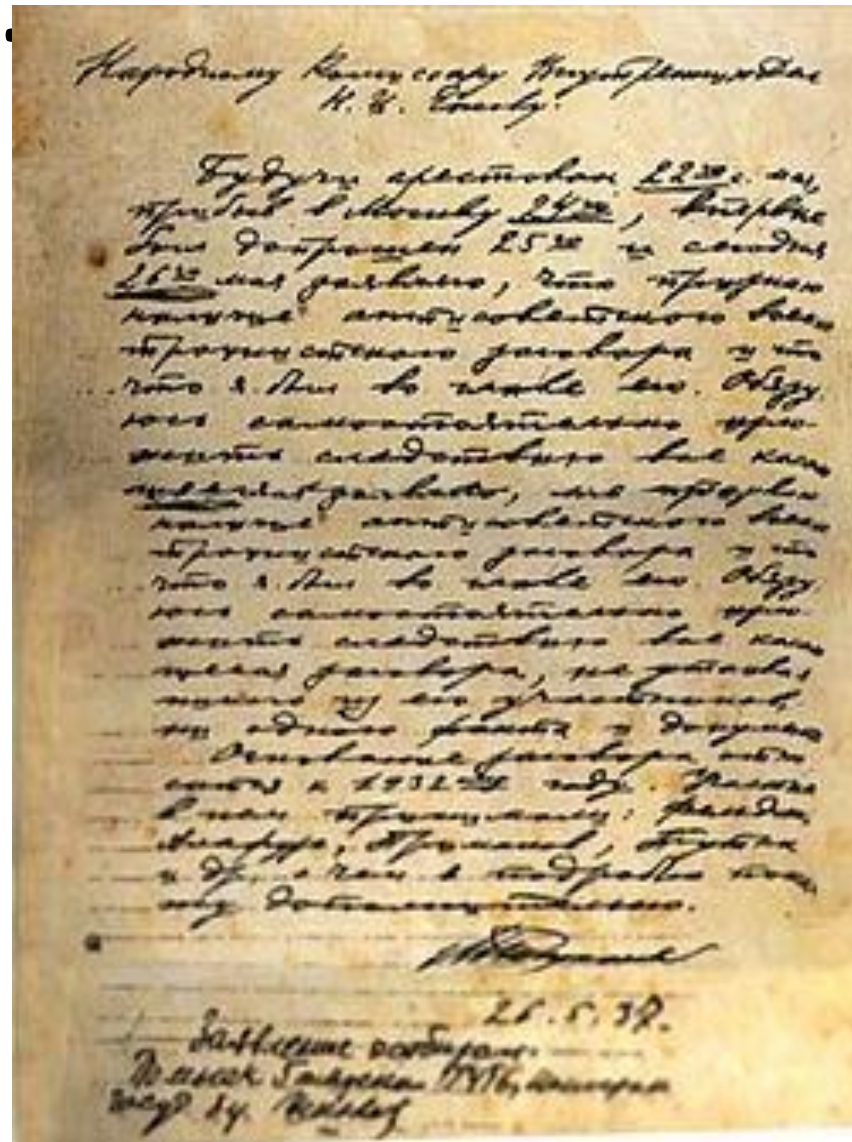 Народному Комиссару Внутренних Дел
Н. И. Ежову.
Будучи арестован 22го с. мая,
прибыв в Москву 24го, впервые
был допрошен 25го и сегодня
26го мая заявляю, что признаю
наличие антисоветского военно
троцкистского заговора и то
что я был во главе его. Обязу
юсь самостоятельно изло
жить следствию все касаю
заявляю, что признаю
наличие антисоветского военно
троцкистского заговора и то
что я был во главе его. Обязу
юсь самостоятельно изло
жить следствию все касаю
щееся заговора, не утаивая
никого из его участников,
ни одного факта и документа
Основание заговора отно
сится к 1932му году. Участие
в нем принимали: Фельдман,
Алафузо, Примаков, Путна
и др., о чем я подробно пока
жу дополнительно.
26.5.37.
Заявление отобрал: